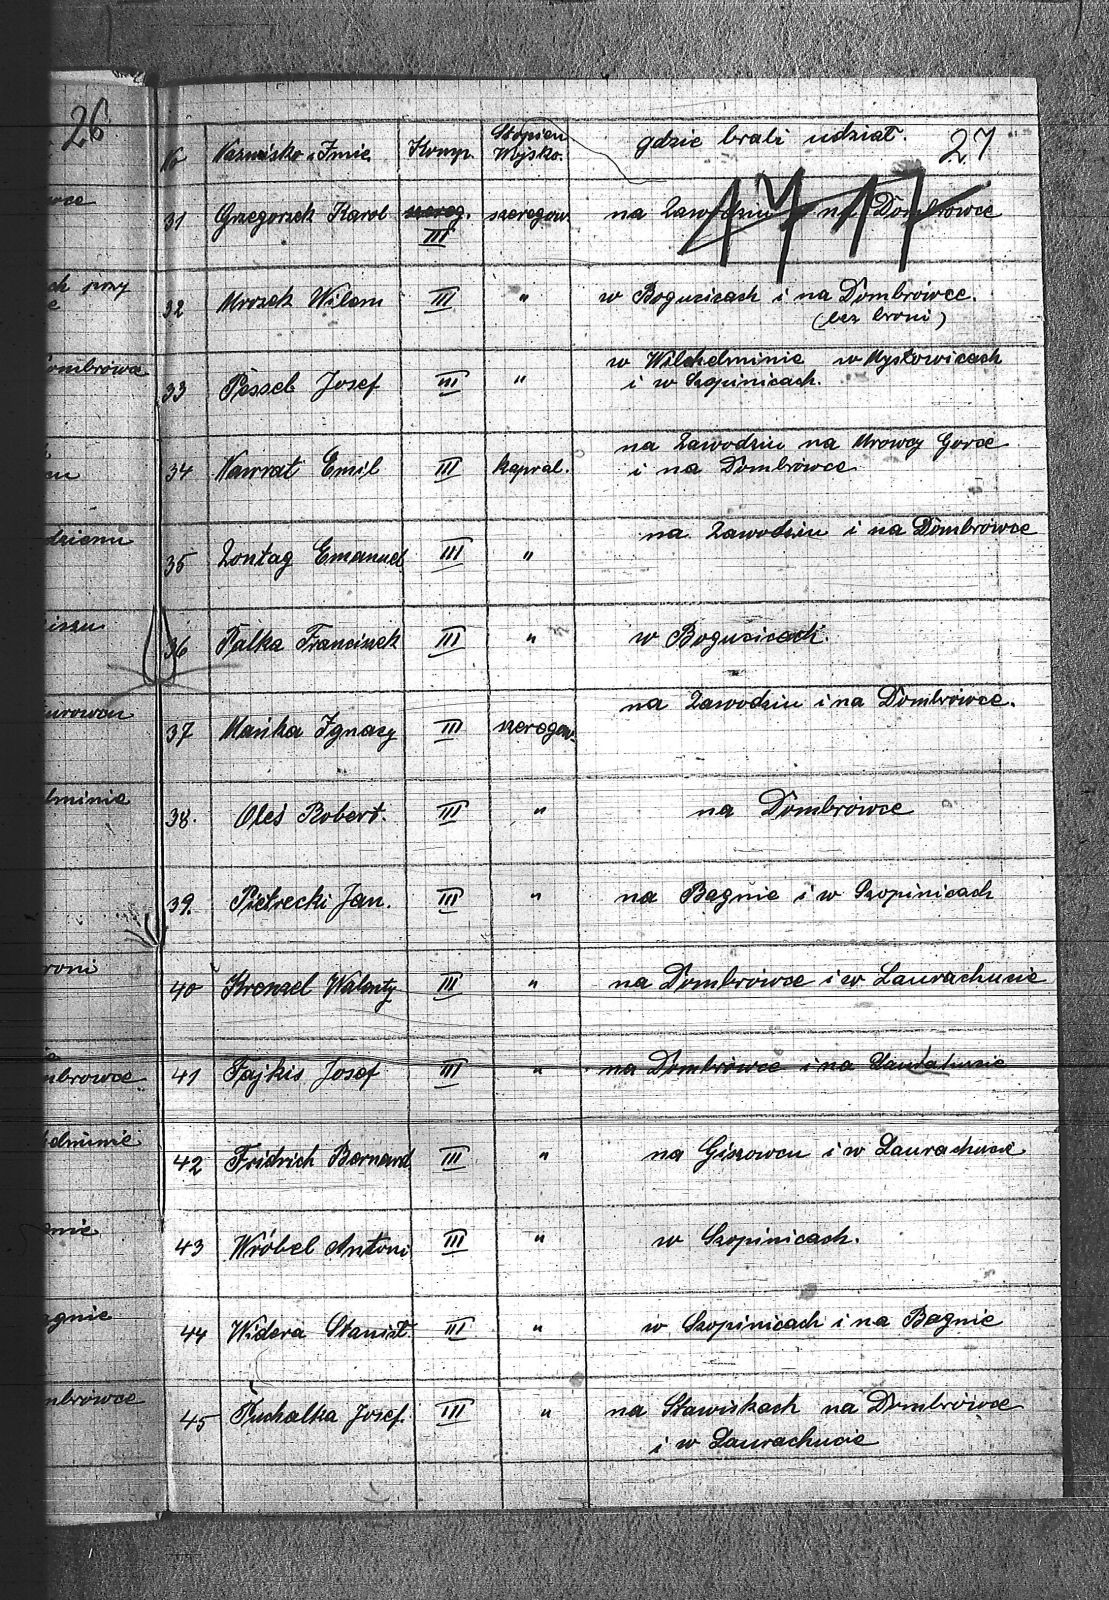 26
27
Nr Nazwisko i Imie Komp. Stopien Wojsko. gdzie brali udział.
1717
31 Grzegorzek Karol szereg. III szeregow. na Zawodziu i na Dombrówce
32 Mrozek Wilem III " w Bogucicach i na Dombrówce.
(bez broni)
33 Possel Josef III " w Wilchelminie w Mysłowicach
i w Szopinicach.
34 Nawrat Emil III kapral. na Zawodziu na Mrowcy Gorce
i na Dombrówce
35 Zontag Emanuel III " na Zawodziu i na Dombrówce
36 Palka Franciszek III " w Bogucicach.
37 Mańka Ignacy III szeregow. na Zawodziu i na Dombrówce.
38. Oleś Robert. III " na Dombrówce
39. Pietrecki Jan. III " na Bagnie i w Szopinicach
40 Krenzel Walenty III " na Dombrówce i w Laurachucie
41 Fajkis Josef III " na Dombrówce i na Laurahucie
42 Fridrich Bernard III " na Giszowcu i w Laurachucie
43 Wróbel Antoni III " w Szopinicach.
44 Widera Stanisł. III " w Szopinicach i na Bagnie
45 Puchalka Josef. III " na Stawiskach na Dombrówce
i w Laurachucie